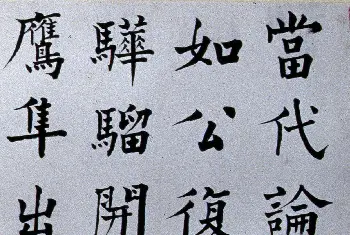 當代論
如公復
驊騮開
鷹隼出